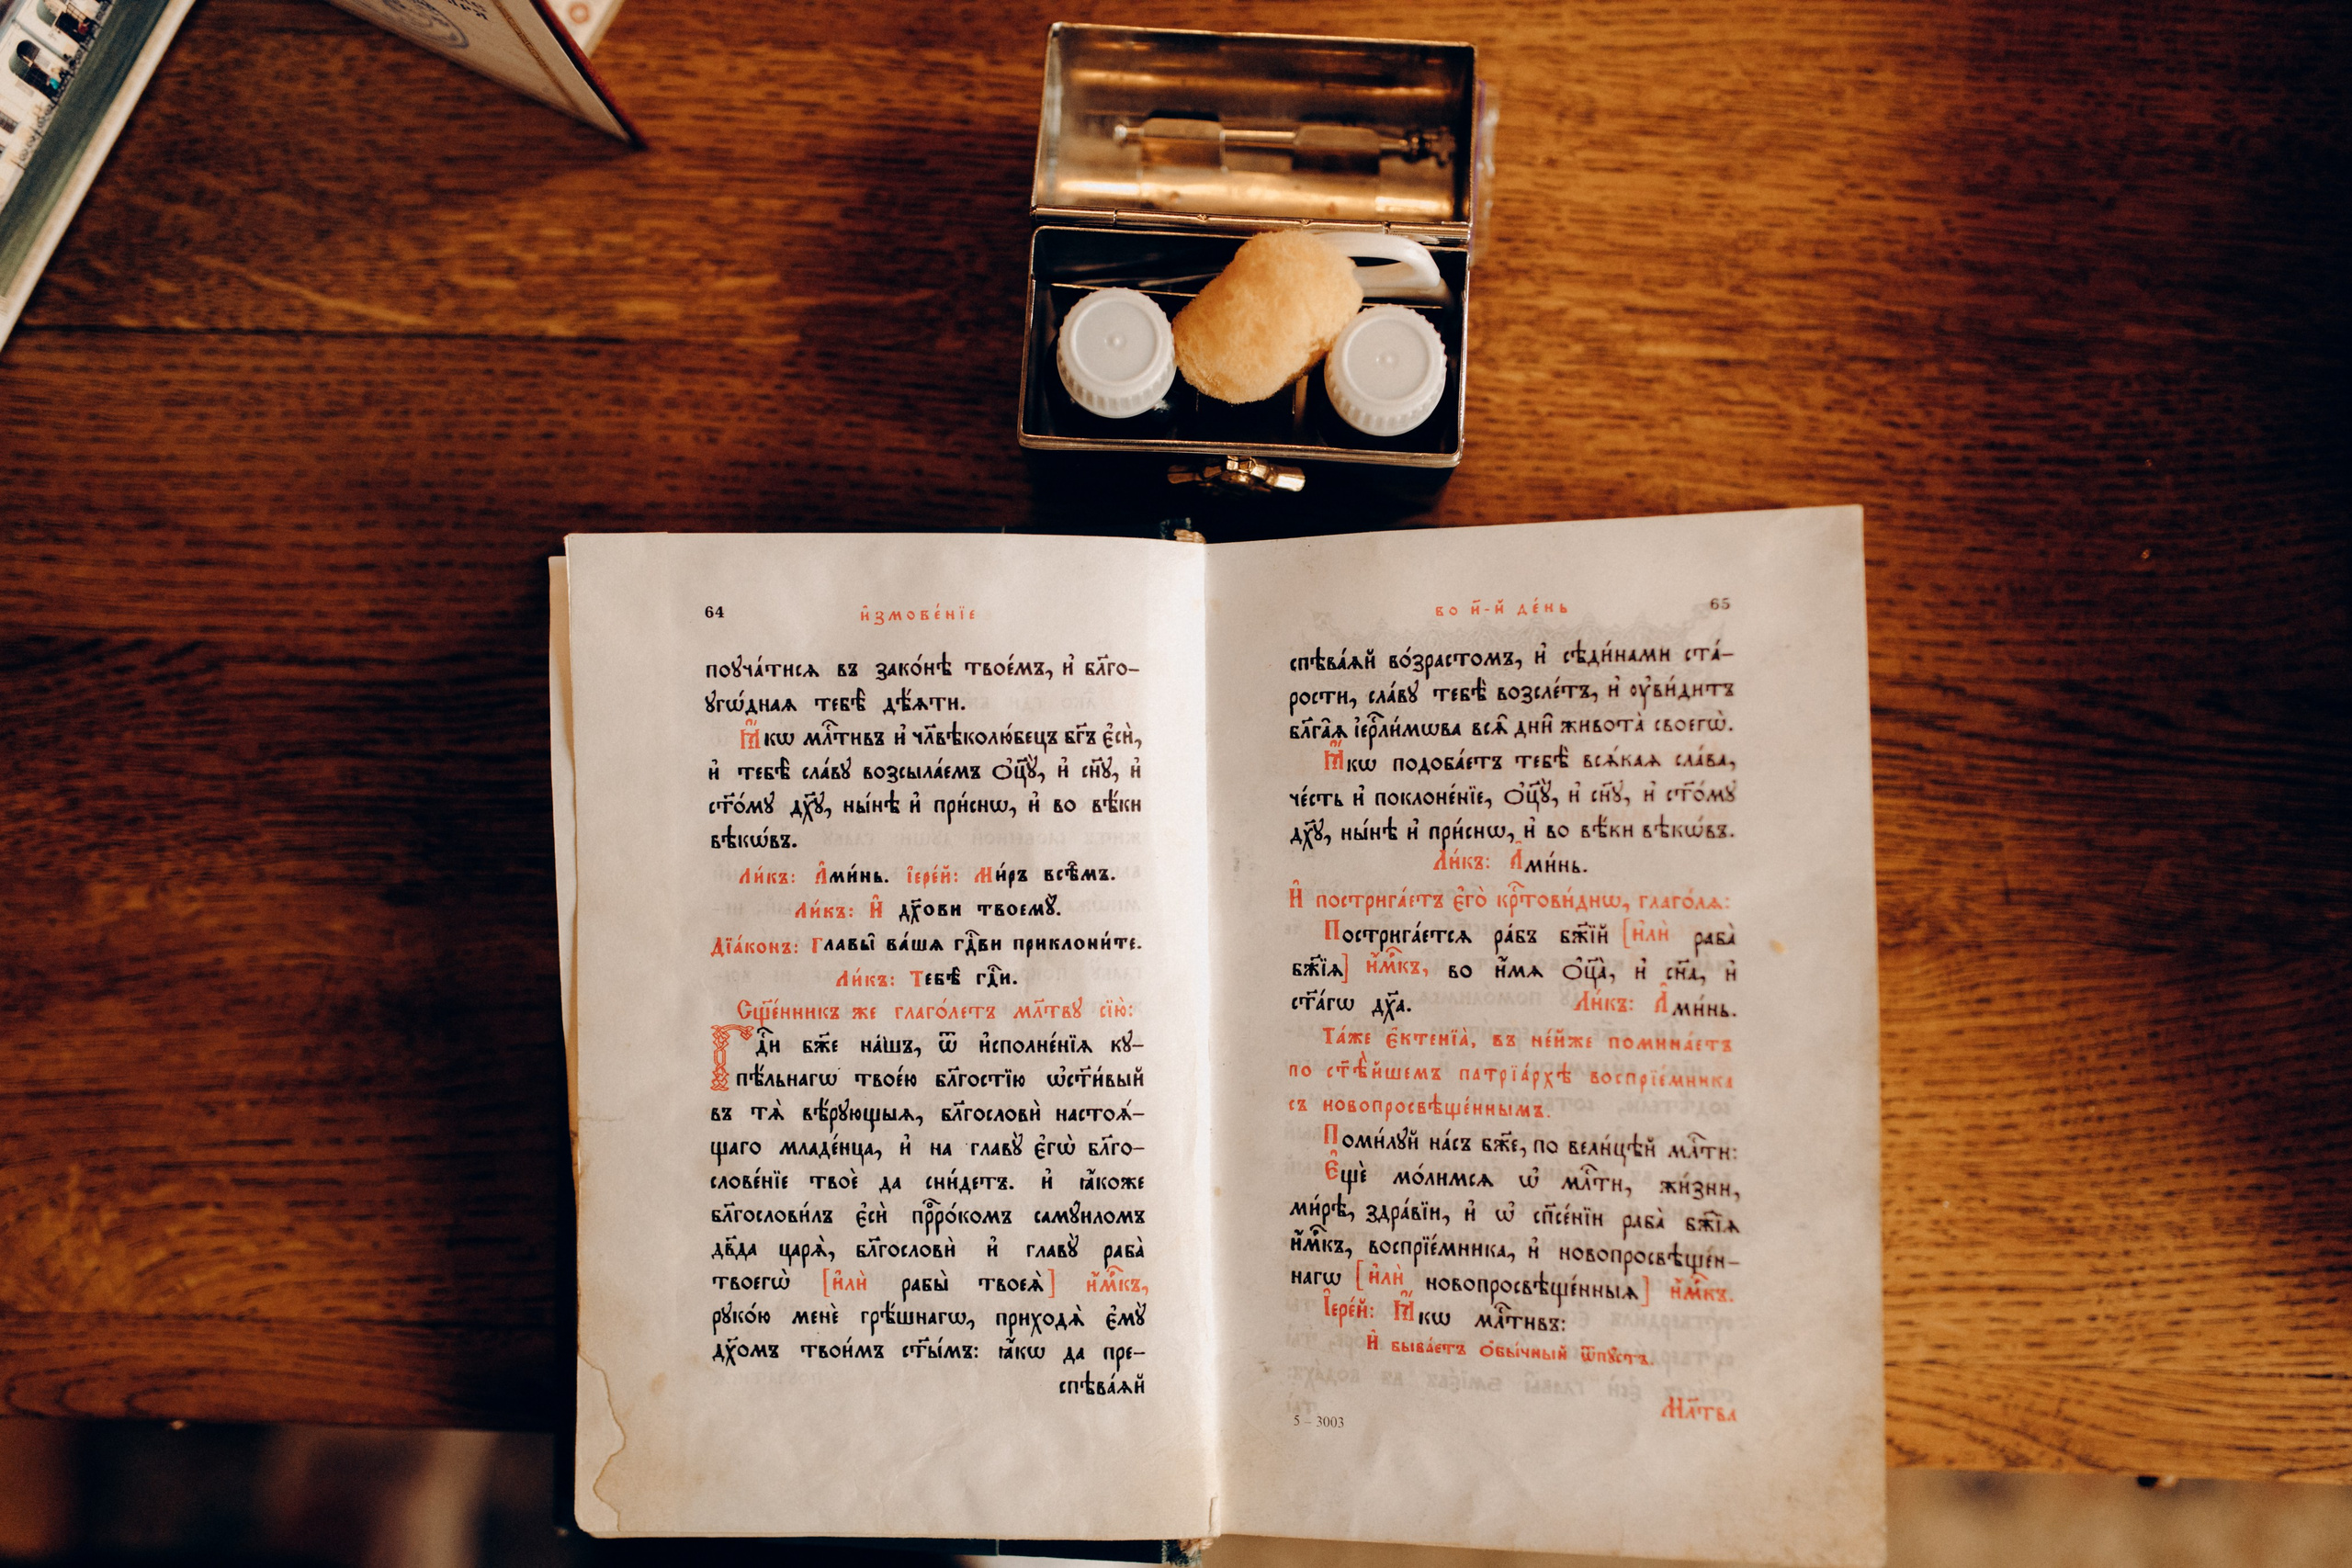 64 и҆змове́нїе
поꙋча́тисѧ въ зако́нѣ твое́мъ, и҆ бл҃го-
ꙋгѡ́днаѧ тебѣ̀ дѣ́ѧти.
Ꙗ҆́кѡ млⷭ҇тивъ и҆ чл҃вѣколю́бецъ бг҃ъ є҆сѝ,
и҆ тебѣ̀ сла́вꙋ возсыла́емъ ѻ҆ц҃ꙋ̀, и҆ сн҃ꙋ, и҆
ст҃о́мꙋ дх҃ꙋ, ны́нѣ и҆ при́снѡ, и҆ во вѣ́ки
вѣкѡ́въ.
Ли́къ: А҆ми́нь. І҆ере́й: Ми́ръ всѣ̑мъ.
Ли́къ: И҆ дх҃ови твоемꙋ̀.
Дїа́конъ: Главы̑ ва́шѧ гдⷭ҇ви приклони́те.
Ли́къ: Тебѣ̀ гдⷭ҇и.
Сщ҃е́нникъ же глаго́летъ мл҃твꙋ сїю̀:
Гдⷭ҇и бж҃е на́шъ, ѿ и҆сполне́нїѧ кꙋ-
пѣ́льнагѡ твое́ю бл҃гостїю ѡ҆ст҃и́вый
въ тѧ̀ вѣ́рꙋющыѧ, бл҃гословѝ настоѧ́-
щаго младе́нца, и҆ на главꙋ̀ є҆гѡ̀ бл҃го-
слове́нїе твоѐ да сни́детъ. и҆ ꙗ҆́коже
бл҃гослови́лъ є҆сѝ прⷪ҇ро́комъ самꙋи́ломъ
дв҃да царѧ̀, бл҃гословѝ и҆ главꙋ̀ раба̀
твоегѡ̀ [и҆лѝ рабы̀ твоеѧ̀] и҆́мⷬ҇къ,
рꙋко́ю менѐ грѣ́шнагѡ, приходѧ̀ є҆мꙋ̀
дх҃омъ твои́мъ ст҃ы́мъ: ꙗ҆́кѡ да пре-
спѣва́ѧй
во и҃-й де́нь 65
спѣва́ѧй во́зрастомъ, и҆ сѣди́нами ста́-
рости, сла́вꙋ тебѣ̀ возсле́тъ, и҆ ᲂу҆ви́дитъ
бл҃га̑ѧ і҆ерⷭ҇ли́мѡва всѧ̑ дни̑ живота̀ своегѡ̀.
Ꙗ҆́кѡ подоба́етъ тебѣ̀ всѧ́каѧ сла́ва,
че́сть и҆ поклоне́нїе, ѻ҆ц҃ꙋ̀, и҆ сн҃ꙋ, и҆ ст҃о́мꙋ
дх҃ꙋ, ны́нѣ и҆ при́снѡ, и҆ во вѣ́ки вѣкѡ́въ.
Ли́къ: А҆ми́нь.
И҆ постриgáетъ є҆го̀ крⷭ҇тови́днѡ, глаго́лѧ:
Постриgáетсѧ ра́бъ бж҃їй [и҆лѝ раба̀
бж҃їѧ] и҆́мⷬ҇къ, во и҆́мѧ ѻ҆ц҃а̀, и҆ сн҃а, и҆
ст҃а́гѡ дх҃а. Ли́къ: А҆ми́нь.
Та́же є҆ктенїа̀, въ не́йже помина́етъ
по ст҃ѣ́йшемъ патрїа́рхѣ воспрїе́мника
съ новопросвѣще́ннымъ.
Поми́лꙋй на́съ бж҃е, по вели́цѣй млⷭ҇ти:
Є҆щѐ мо́лимсѧ ѡ҆ млⷭ҇ти, жи́зни,
ми́рѣ, здра́вїи, и҆ ѡ҆ сп҃се́нїи раба̀ бж҃їѧ
и҆́мⷬ҇къ, воспрїе́мника, и҆ новопросвѣще́н-
нагѡ [и҆лѝ новопросвѣще́нныѧ] и҆́мⷬ҇къ.
І҆ере́й: Ꙗ҆́кѡ млⷭ҇тивъ:
И҆ быва́етъ ѻ҆бы́чный ѿпꙋ́стъ.
Мл҃тва
5 – 3003